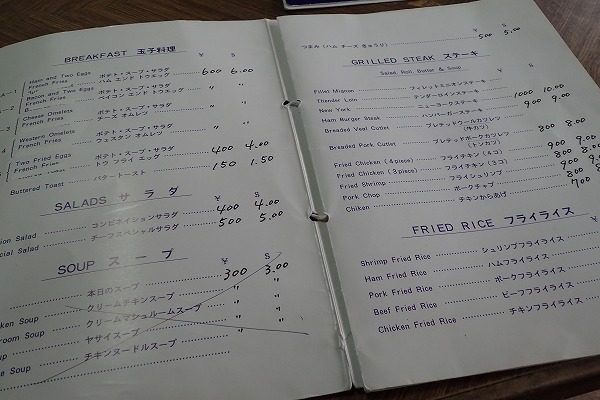 BREAKFAST 玉子料理 ¥ $
A-1 Ham and Two Eggs ポテト・スープ・サラダ 600 6.00
French Fries ハム エンド トウエッグ
-2 Bacon and Two Eggs ポテト・スープ・サラダ 〃 〃
French Fries ベイコン エンド トウエッグ
3 Cheese Omelets ポテト・スープ・サラダ 〃 〃
French Fries チーズ オムレツ
Western Omelets ポテト・スープ・サラダ 〃 〃
French Fries ウェスタン オムレツ
Two Fried Eggs ポテト・スープ・サラダ 400 4.00
French Fries トウ フライ エッグ
Buttered Toast バタートースト 150 1.50
SALADS サラダ ¥ $
ion Salad コンビネイションサラダ 400 4.00
cial Salad チーフスペシャルサラダ 500 5.00
SOUP スープ ¥ $
本日のスープ 300 3.00
ken Soup クリームチキンスープ 〃 〃
room Soup クリームマシュルームスープ 〃 〃
up ヤサイスープ 〃 〃
e Soup チキンヌードルスープ 〃 〃
つまみ (ハム チーズ きゅうり) 500 5.00
GRILLED STEAK ステーキ
Salad, Roll, Butter & Soup
Fillet Mignon フィレットミニオンステーキ
Thender Loin テンダーロインステーキ
New York ニューヨークステーキ 1000 10.00
Ham Burger Steak ハンバーガーステーキ 900 9.00
Breaded Veal Cutlet ブレデッドウールカツレツ
(牛カツ)
Breaded Pork Cutlet ブレデッドポークカツレツ 800 8.00
(トンカツ)
Fried Chicken (4 piece) フライチキン (4コ) 900 9.00
Fried Chicken (3 piece) フライチキン (3コ) 800 8.
Fried Shrimp フライシュリンプ 900 9
Pork Chop ポークチャプ 800 8
Chiken チキンからあげ 700
FRIED RICE フライライス ¥
Shrimp Fried Rice シュリンプフライライス
Ham Fried Rice ハムフライライス
Pork Fried Rice ポークフライライス
Beef Fried Rice ビーフフライライス
Chicken Fried Rice チキンフライライス